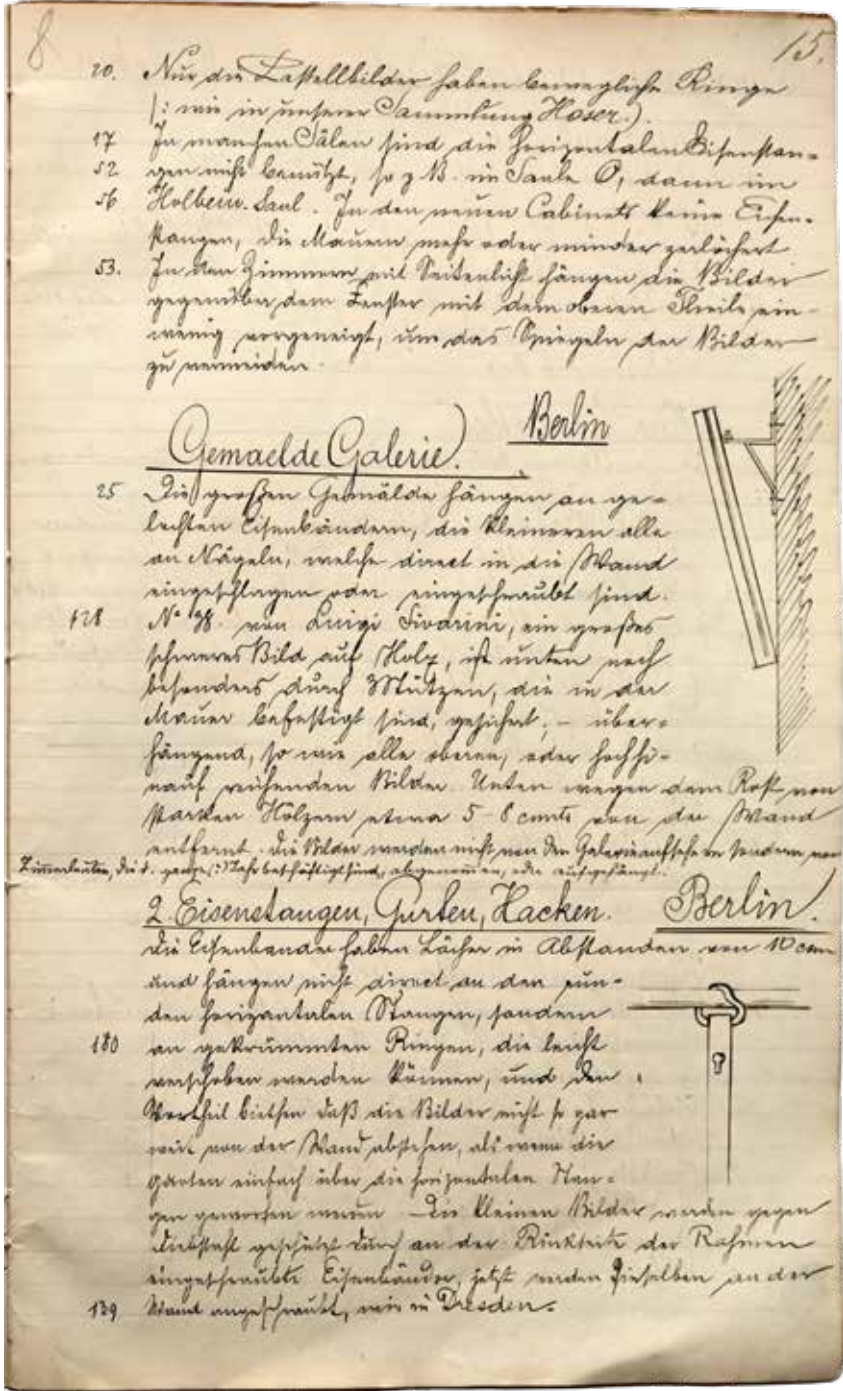 8
15.
20. Nur die Pastellbilder haben bewegliche Ringe
(: wie in unserer Sammlung Hoser.)
17 In manchen Sälen sind die horizontalen Eisenstan-
52 gen nicht benützt, so z B. im Saale O, dann im
56 Holbein-Saal. In den neuen Cabinets keine Eisen-
stangen, die Mauern mehr oder minder zerlöchert
53. In den Zimmern mit Seitenlicht hängen die Bilder
gegenüber dem Fenster mit dem oberen Theile ein-
wenig vorgeneigt, um das Spiegeln der Bilder
zu vermeiden.
Berlin
Gemaelde Galerie.
25 Die großen Gemälde hängen an ge-
lochten Eisenbändern, die kleineren alle
an Nägeln, welche direct in die Wand
eingeschlagen oder eingeschraubt sind.
No 38. von Luigi Vivarini, ein großes
schweres Bild auf Holz, ist unten noch
besonders durch Stützen, die in der
Mauer befestigt sind, gesichert; – über-
hängend, so wie alle oberen, oder hoch hi-
nauf reichenden Bilder. Unten wegen dem Rost von
starken Hölzern etwa 5-8 cmts von der Wand
entfernt. Die Bilder werden nicht von den Galerieaufsehern sondern von
Zimmerleuten, die d. ganze Jahr beschäftigt sind, abgenommen, oder aufgehängt.
2. Eisenstangen, Gurten, Hacken. Berlin.
Die Eisenbander haben Löcher in Abstanden von 10 cm
und hängen nicht direct an den run-
den horizontalen Stangen, sondern
180 an gekrümmten Ringen, die leicht
verschoben werden können, und den
Vortheil biethen daß die Bilder nicht so gar
weit von der Wand abstehen, als wenn die
Gurten einfach über die horizontalen Stan-
gen geworfen waren – Die kleinen Bilder werden gegen
Diebstahl geschützt durch an der Rückseite der Rahmen
eingeschraubte Eisenbänder, jetzt werden dieselben an der
139 Wand angeschraubt, wie in Dresden.